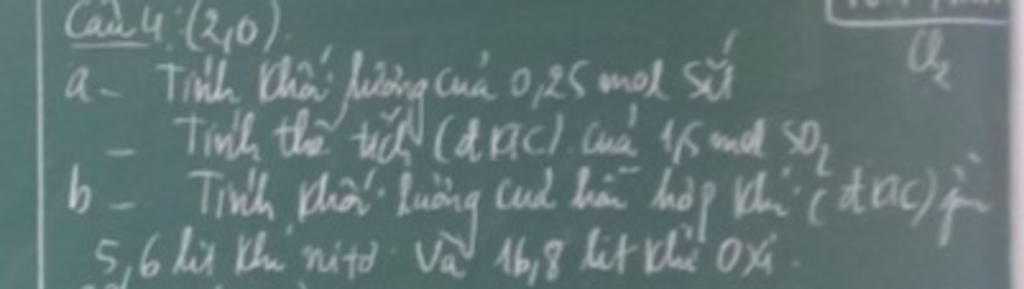 Câu 4: (2,0).
O2
a - Tính khối lượng của 0,25 mol Sắt
- Tính thể tích (đktc) của 1,5 mol SO2
b - Tính khối lượng của hỗn hợp khí (đktc) gồm
5,6 lít khí nitơ và 16,8 lít khí oxi.